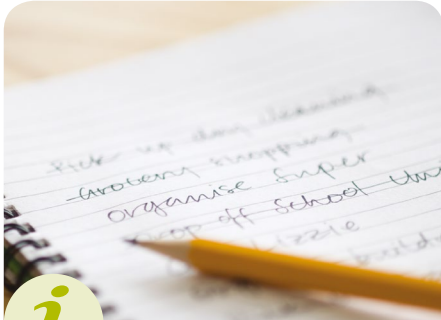 Pick up dry cleaning
Grocery shopping
organise super
drop off school
Lizzie